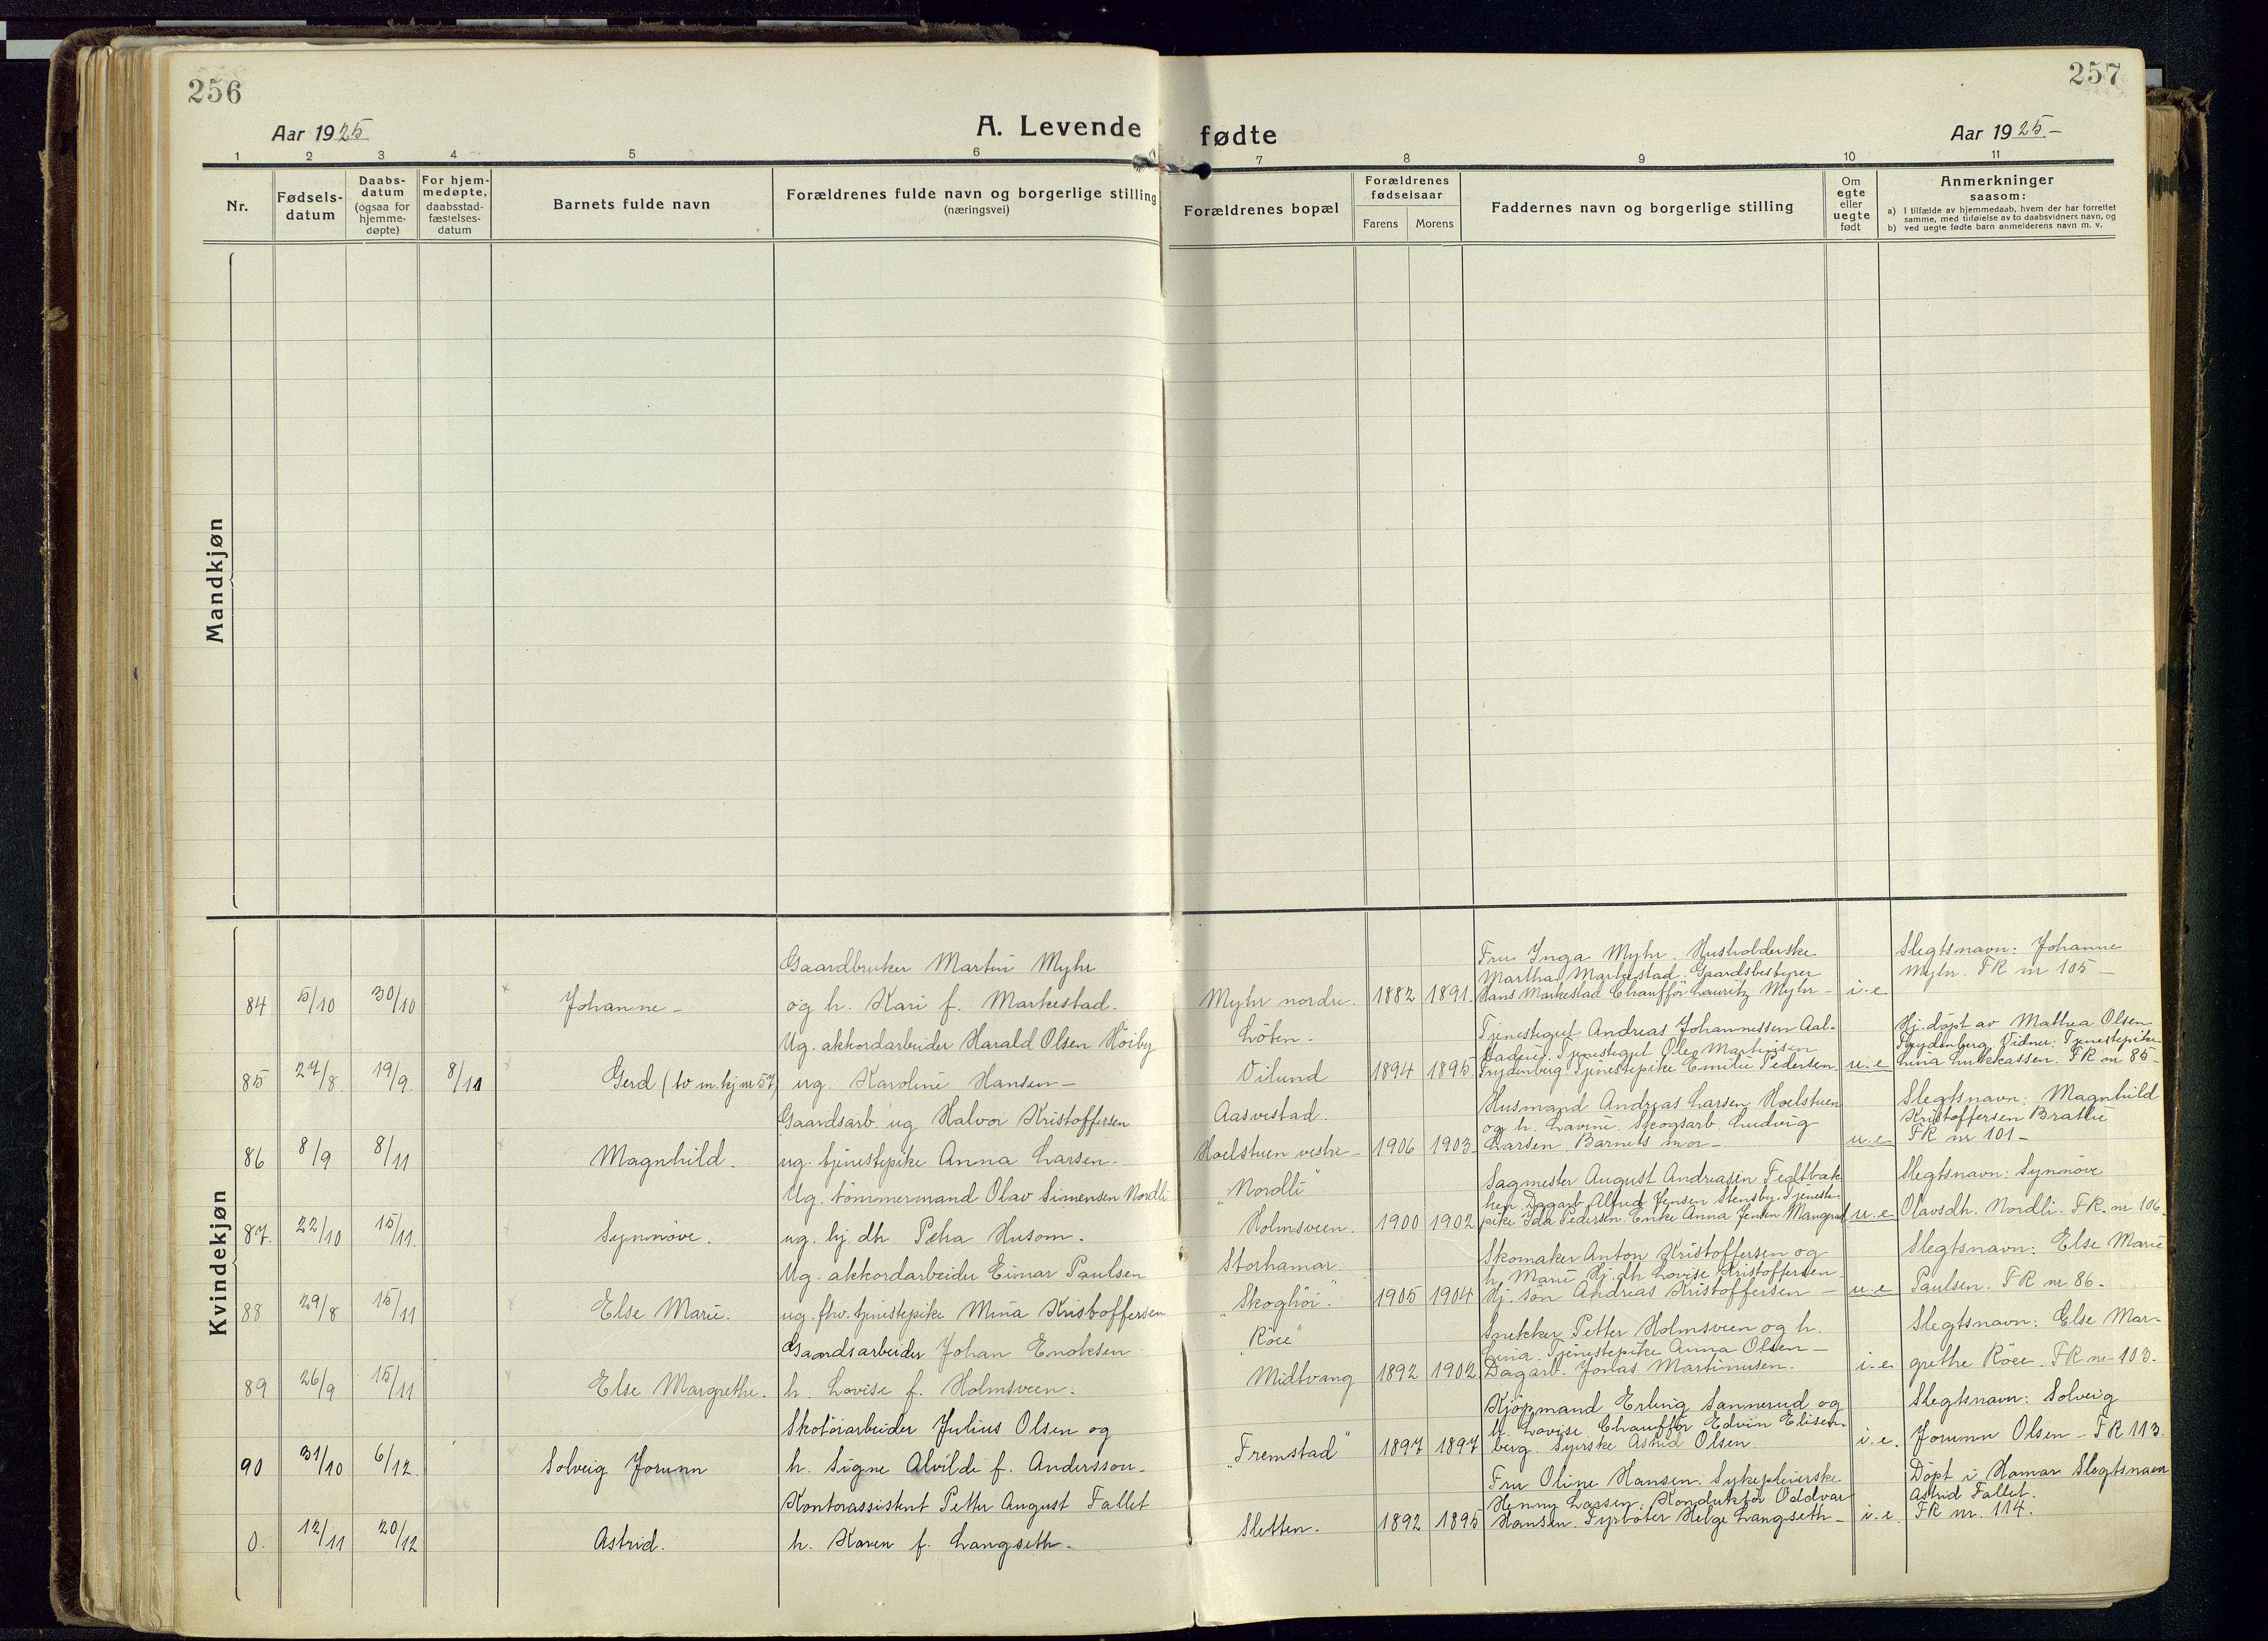 256
257
Aar 1925
A. Levende fødte
Aar 1925 –
1 2 3 4 5 6 7 8 9 10 11
Nr.
Fødsels-
datum
Daabs-
datum
(ogsaa for
hjemme-
døpte)
For hjem-
medøpte,
daabsstad-
fæstelses-
datum
Barnets fulde navn
Forældrenes fulde navn og borgerlige stilling
(næringsvei)
Forældrenes bopæl
Forældrenes
fødselsaar
Farens Morens
Faddernes navn og borgerlige stilling
Om
egte
eller
uegte
født
Anmerkninger
saasom:
a) I tilfælde av hjemmedaab, hvem der har forrettet
samme, med tilføielse av to daabsvidners navn, og
b) ved uegte fødte barn anmelderens navn m. v.
Mandkjøn
Kvindekjøn
84
5/10
30/10
Johanne –
Gaardbruker Martin Myhr
og h. Kari f. Markestad.
Myhr nordre.
1882 1891.
Fru Inga Myhr. Husholderske
Martha Markestad. Gaardsbestyrer
Hans Markestad Chauffør Lauritz Myhr –
i.e.
Slegtsnavn: Johanne
Myhr. FR nr 105 –
85
27/8.
19/9.
8/11
Gerd (tv m. hj nr 57)
Ug. akkordarbeider Harald Olsen Höiby
ug. Karoline Hansen –
Löten.
Vilund
1894 1895.
Tjenestegut Andreas Johannessen Aal-
Tjenestegut Olav Martinsen
Frydenberg Tjenestepike Emilie Pedersen.
u.e
Hj. döpt av Mathea Olsen
Frydenberg. Vidner: Tjenestepike
FR nr 85 –
86
8/9
8/11
Magnhild.
Gaardsarb. ug Halvor Kristoffersen
ug. tjenestepike Anna Larsen.
Aasvestad.
Hoelstuen vestre –
1906 1903.
Husmand Andreas Larsen Hoelstuen
og h. Lovine. Skogsarb. Ludvig
Larsen. Barnets mor –
u.e
Slegtsnavn: Magnhild
Kristoffersen Brattli
FR nr 101 –
87.
22/10
15/11.
Synnöve.
Ug. tömmermand Olav Simensen Nordli
ug. hj. dtr Petra Husom.
"Nordli"
Holmsveen.
1900 1902
Sagmester August Andreasen Fegltbak
ken. Dagarb. Alfred Jensen Stensby. Tjeneste-
pike Ida Pedersen. Enke Anna Jensen Mangerud
u.e
Slegtsnavn: Synnöve
Olavsdtr. Nordli. FR. nr 106.
88
29/8
15/11
Else Marie.
Ug. akkordarbeider Einar Paulsen
ug. fhv. tjenestepike Mina Kristoffersen
Storhamar
"Skoghöi".
1905 1904
Skomaker Anton Kristoffersen og
h. Marie Hj. dtr Lovise Kristoffersen
Hj. sön Andreas Kristoffersen –
u.e
Slegtsnavn: Else Marie
Paulsen. FR nr 86.
89
26/9
15/11
Else Margrethe.
Gaardsarbeider Johan Enoksen
h. Lovise f. Holmsveen.
"Röee"
Midtvang
1892 1902
Snekker Petter Holmsveen og h.
Lina. Tjenestepike Anna Olsen –
Dagarb. Jonas Martinusen.
i.e
Slegtsnavn: Else Mar-
grethe Röee. FR nr 103.
90
31/10
6/12.
Solveig Jorunn
Skotöiarbeider Julius Olsen og
h. Signe Alvilde f. Andersson.
"Fremstad"
1897 1897
Kjöpmand Erling Sannerud og
h. Lovise. Chauffør Edvin Elisen-
berg. Syerske Astrid Olsen.
i.e.
Slegtsnavn: Solveig
Jorunn Olsen – FR 113.
0.
12/11
20/12
Astrid.
Kontorassistent Petter August Fallet
h. Karen f. Langseth.
Sletten.
1892 1895
Fru Oline Hansen. Sykepleierske
Henny Larsen. Konduktör Oddvar
Hansen. Fyrböter Helge Langseth –
i.e.
Döpt i Hamar Slegtsnavn
Astrid Fallet.
FR nr. 114.